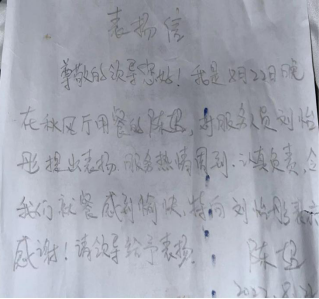 表扬信
尊敬的领导您好！我是8月22日晚
在秋风厅用餐的陈，对服务员刘怡
彤提出表扬，服务热情周到，认真负责，令
我们就餐感到愉快，特向刘怡彤表示
感谢！请领导给予表扬。
陈